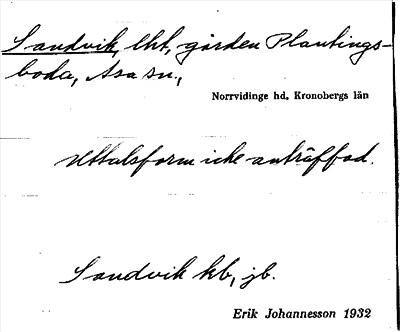 Sandvik, lht, gården Plantings-
boda, Asa sn.,
Norrvidinge hd, Kronobergs län
Uttalsform icke anträffad.
Sandvik kb, jb.
Erik Johannesson 1932